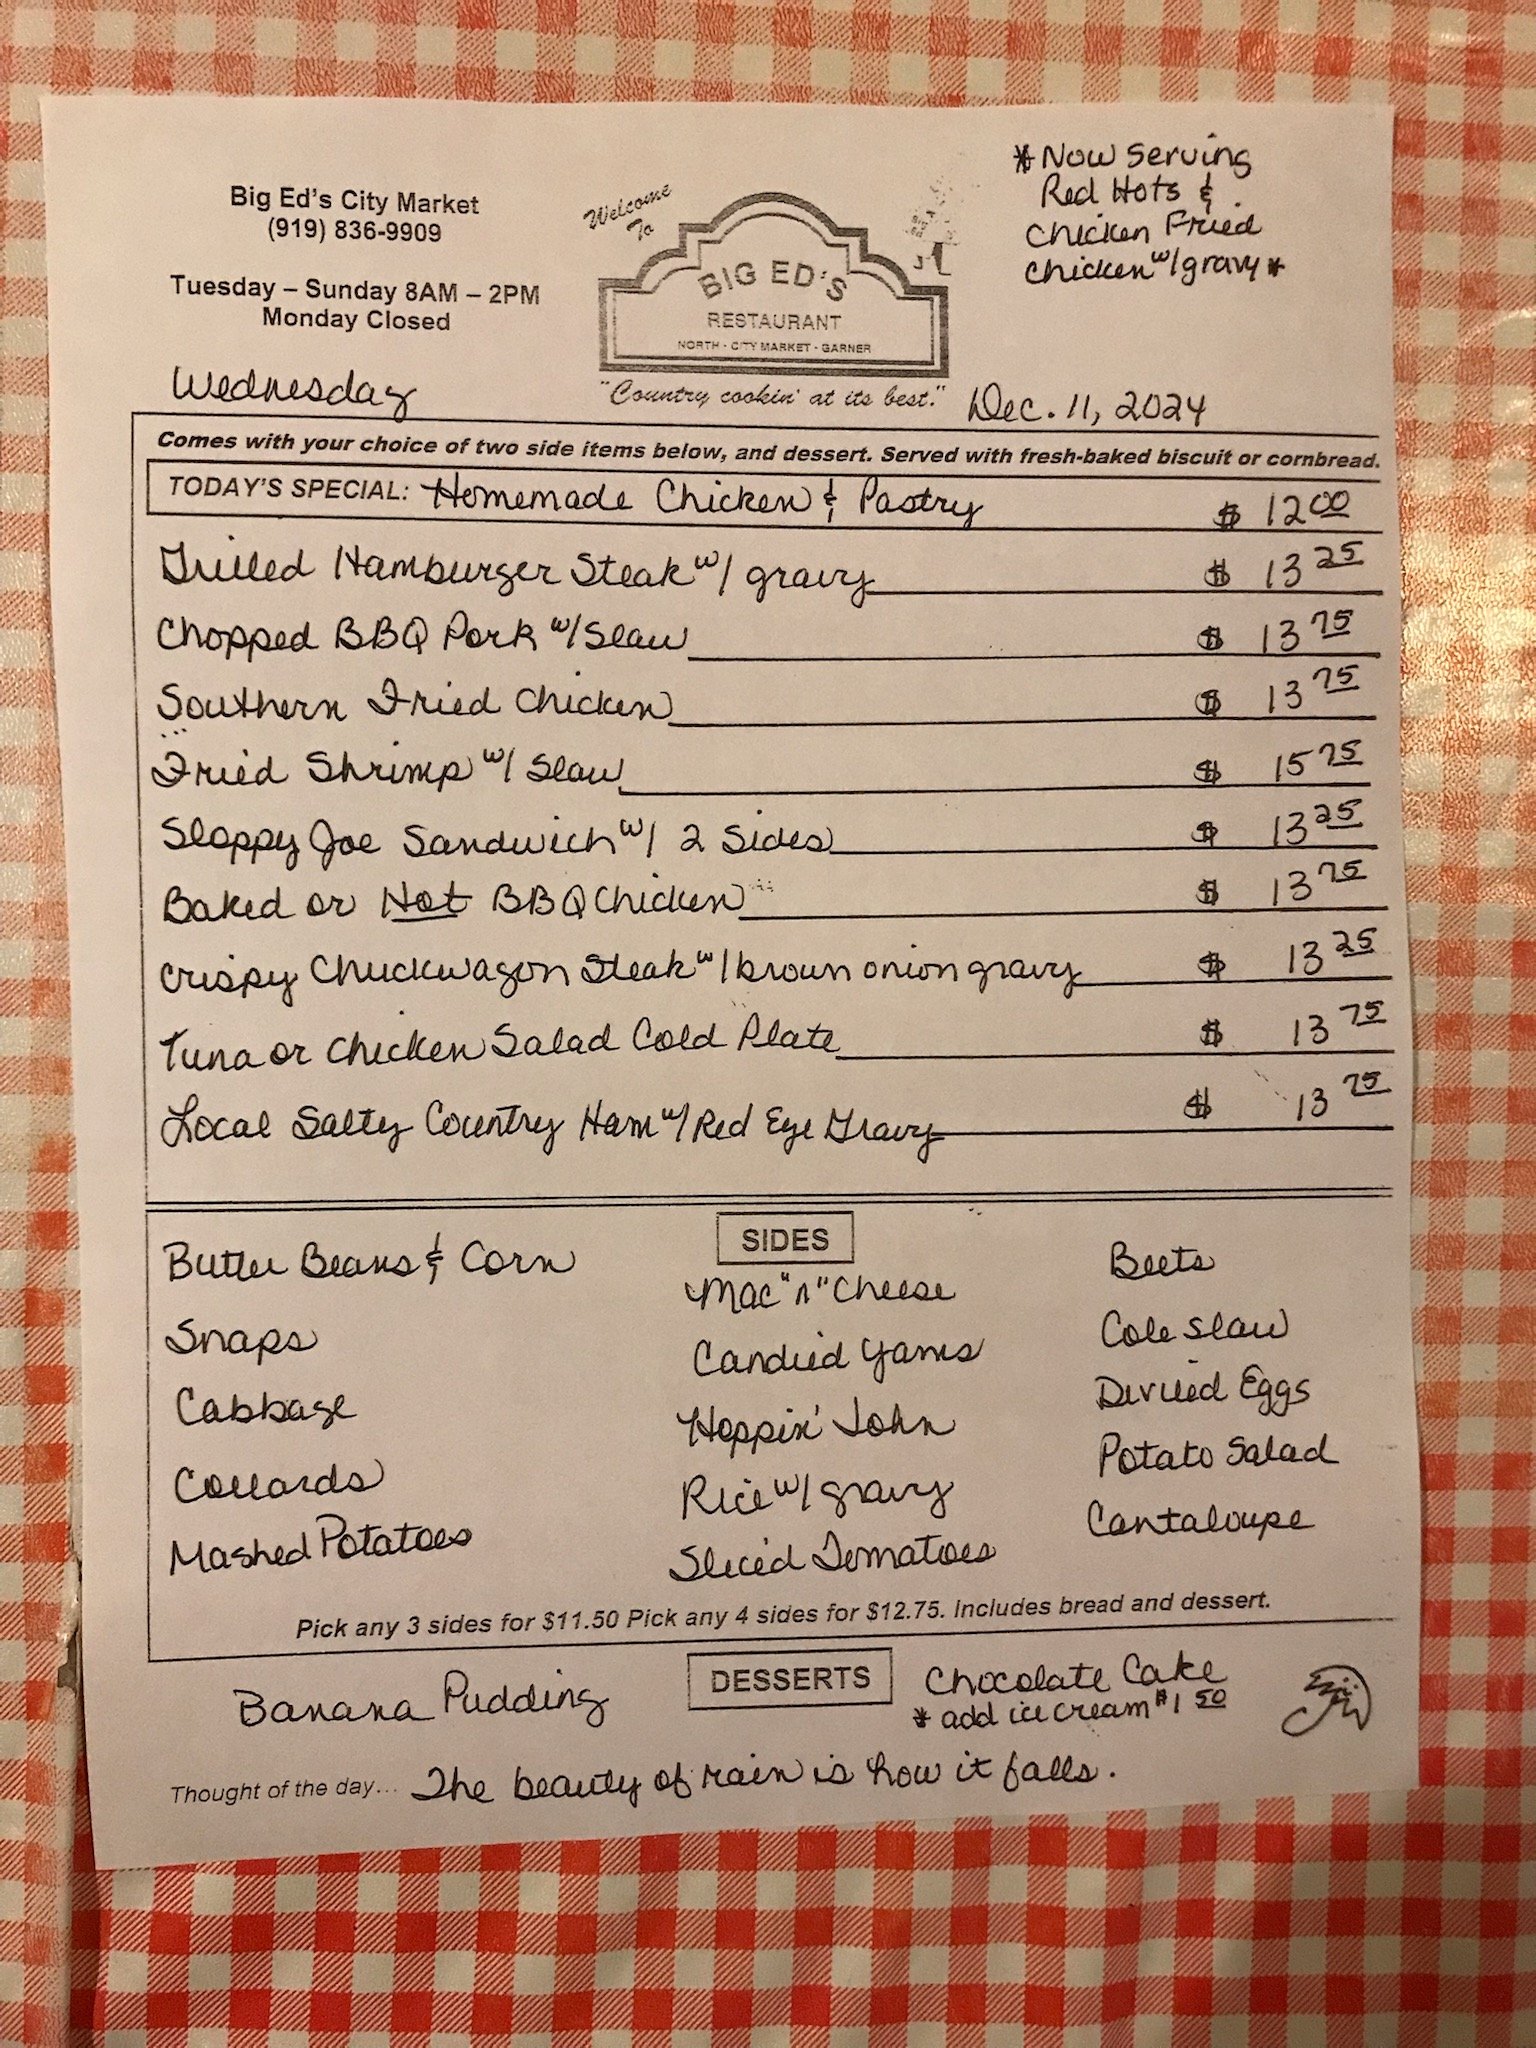 Big Ed's City Market
(919) 836-9909
Tuesday – Sunday 8AM – 2PM
Monday Closed
Welcome
To
BIG ED'S
RESTAURANT
NORTH - CITY MARKET - GARNER
"Country cookin' at its best."
*Now Serving
Red Hots &
Chicken Fried
Chicken w/gravy*
Wednesday
Dec. 11, 2024
Comes with your choice of two side items below, and dessert. Served with fresh-baked biscuit or cornbread.
TODAY'S SPECIAL: Homemade Chicken & Pastry $ 12 00
Grilled Hamburger Steak w/ gravy $ 13 25
Chopped BBQ Pork w/Slaw $ 13 75
Southern Fried Chicken $ 13 75
Fried Shrimp w/ Slaw $ 15 75
Sloppy Joe Sandwich w/ 2 Sides $ 13 25
Baked or Hot BBQ Chicken $ 13 75
Crispy Chuckwagon Steak w/brown onion gravy $ 13 25
Tuna or Chicken Salad Cold Plate $ 13 75
Local Salty Country Ham w/Red Eye Gravy $ 13 75
SIDES
Butter Beans & Corn
Snaps
Cabbage
Collards
Mashed Potatoes
Mac "n" Cheese
Candied Yams
Hoppin' John
Rice w/ gravy
Sliced Tomatoes
Beets
Cole Slaw
Deviled Eggs
Potato Salad
Cantaloupe
Pick any 3 sides for $11.50 Pick any 4 sides for $12.75. Includes bread and dessert.
DESSERTS
Banana Pudding
Chocolate Cake
* add ice cream $1 50
Thought of the day... The beauty of rain is how it falls.